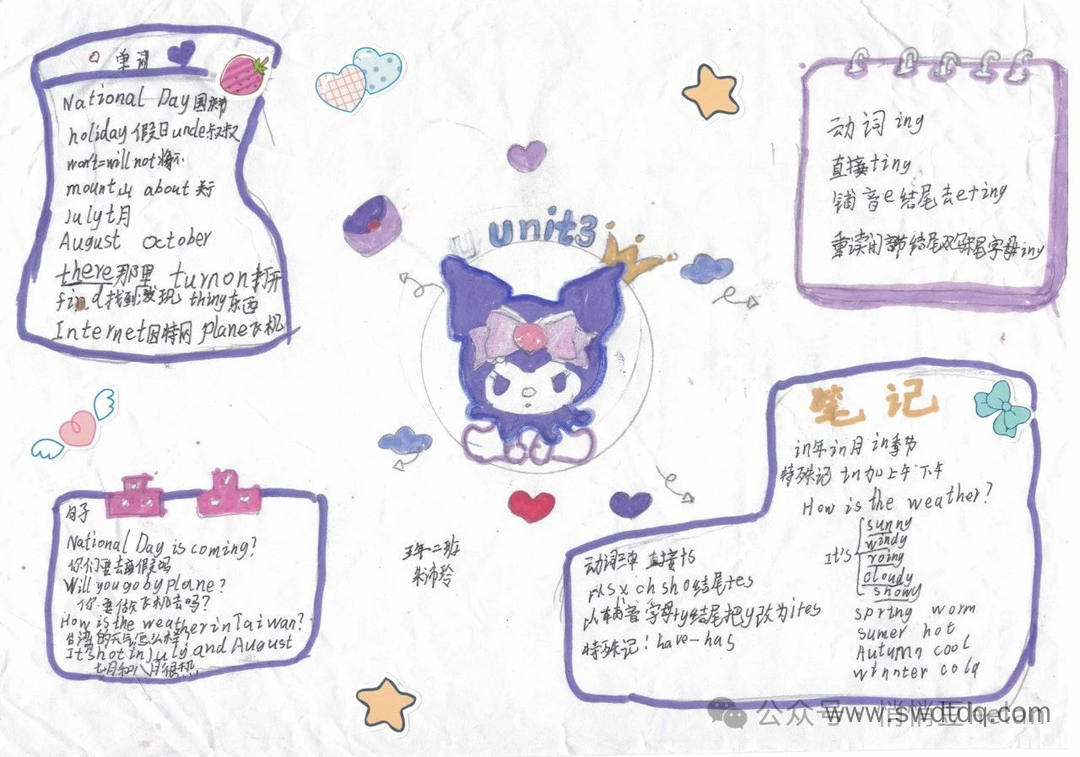 单词
National Day 国庆节
holiday 假日 uncle 叔叔
won't=will not 将不
mount 山 about 关于
July 七月
August October
there 那里 turn on 打开
find 找到发现 thing 东西
Internet 因特网 plane 飞机
unit3
动词 ing
直接+ing
辅音e结尾去e+ing
重读闭节结尾双写尾字母ing
句子
National Day is coming?
你们要去度假吗
Will you go by plane?
你要做飞机去吗?
How is the weather in Taiwan?
台湾的天气怎么样
It's hot in July and August
七月和八月很热
五年二班
朱沛玲
笔记
in年 in月 in季节
特殊记 in加上午下午
How is the weather?
It's
sunny
windy
roing
cloudy
snowy
spring worm
sumer hot
Autumn cool
winnter cold
动词三单 直接+s
s x ch sh o结尾+es
以辅音字母+y结尾把y改为ites
特殊记: have-has
公众号
www.swdtdq.com